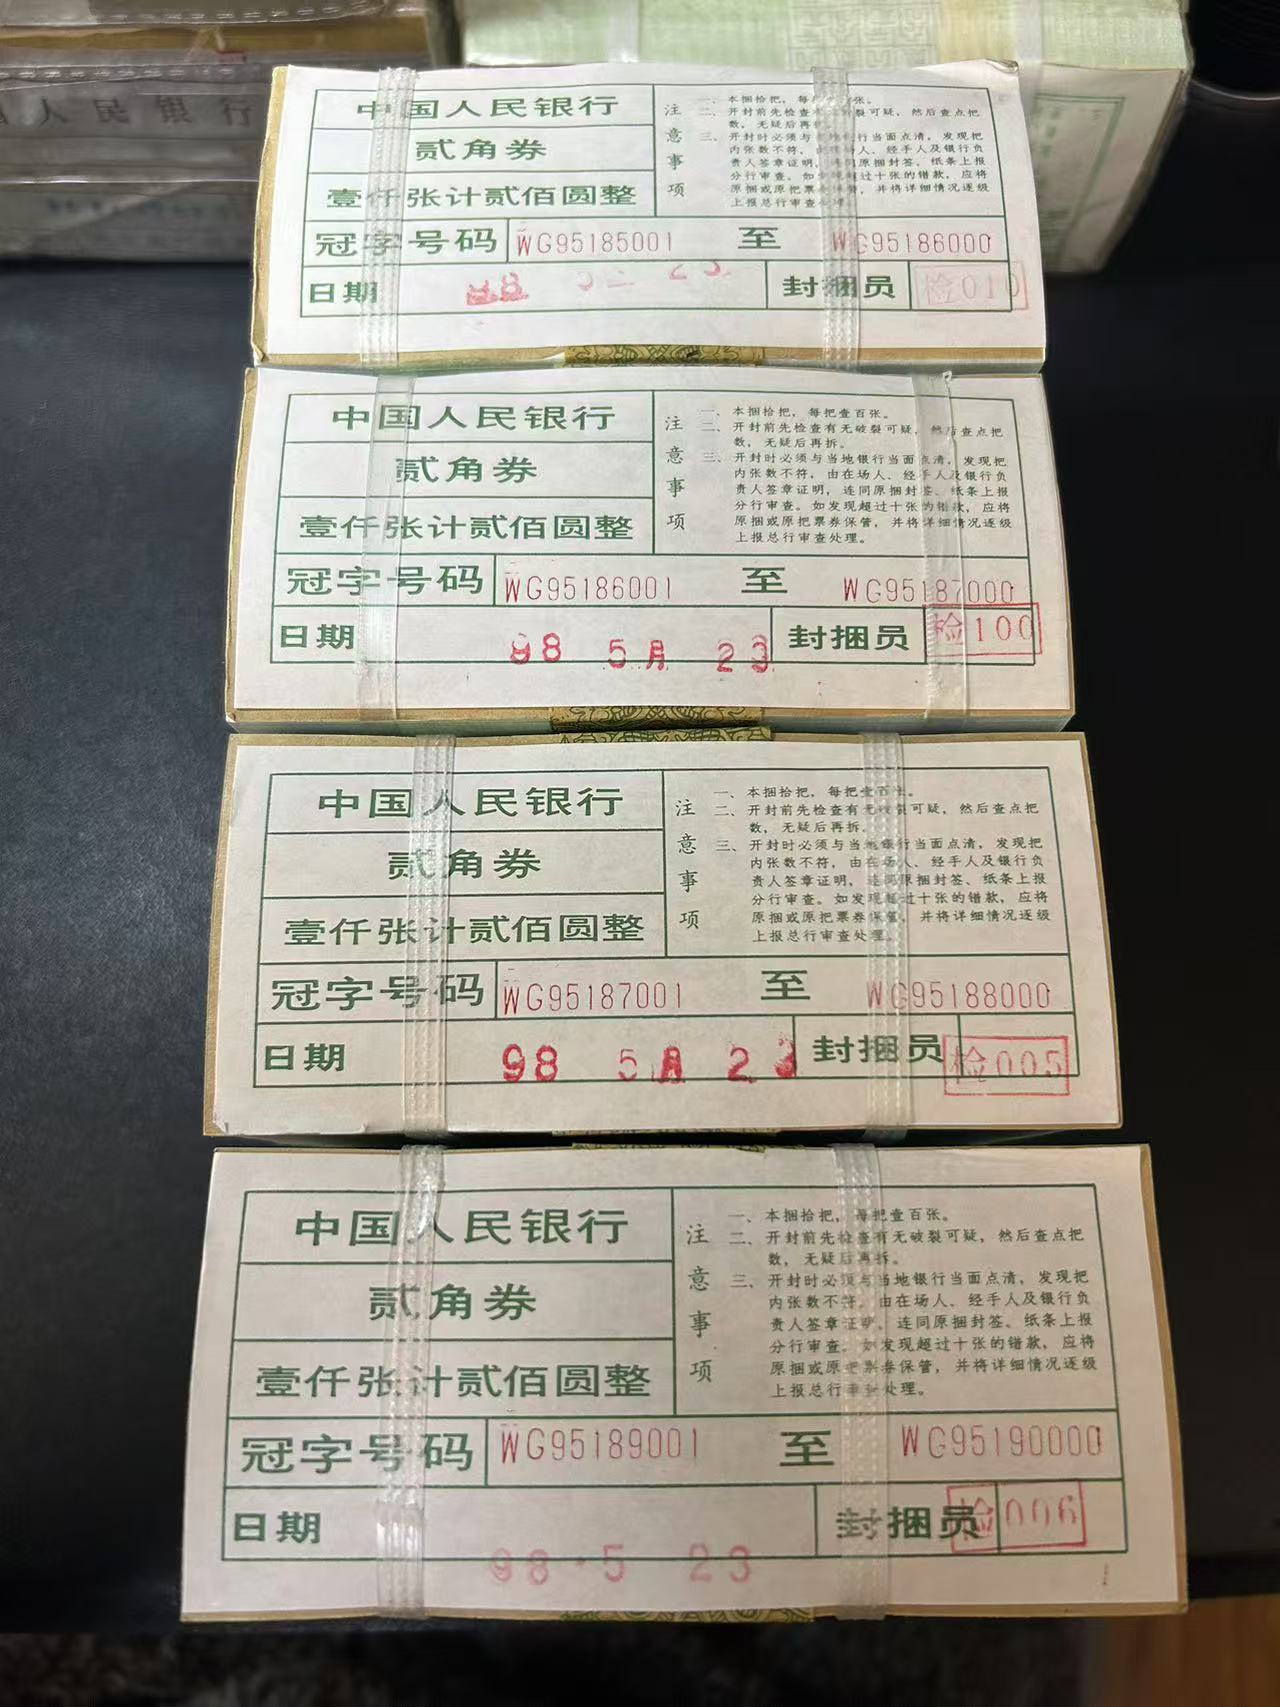 人民银行
中国人民银行
贰角券
壹仟张计贰佰圆整
注意事项
一、本捆拾把，每 张。
二、开封前先检查 裂可疑，然后查点把
数，无疑后再
三、开封时必须与 行当面点清，发现把
内张数不符， 场人、经手人及银行负
责人签章证明， 同原捆封签、纸条上报
分行审查。如 超过十张的错款，应将
原捆或原把票 管，并将详细情况逐级
上报总行审查 理。
冠字号码 WG95185001 至 WG95186000
日期 98 23 封捆员 检010
中国人民银行
贰角券
壹仟张计贰佰圆整
注意事项
一、本捆拾把，每把壹百张。
二、开封前先检查有无破裂可疑，然后查点把
数，无疑后再拆。
三、开封时必须与当地银行当面点清，发现把
内张数不符，由在场人、经手人及银行负
责人签章证明，连同原捆封签、纸条上报
分行审查。如发现超过十张的错款，应将
原捆或原把票券保管，并将详细情况逐级
上报总行审查处理。
冠字号码 WG95186001 至 WG95187000
日期 98 5月 23 封捆员 检100
中国人民银行
贰角券
壹仟张计贰佰圆整
注意事项
一、本捆拾把，每把壹百张。
二、开封前先检查有无破裂可疑，然后查点把
数，无疑后再拆。
三、开封时必须与当地银行当面点清，发现把
内张数不符，由在场人、经手人及银行负
责人签章证明，连同原捆封签、纸条上报
分行审查。如发现超过十张的错款，应将
原捆或原把票券保管，并将详细情况逐级
上报总行审查处理。
冠字号码 WG95187001 至 WG95188000
日期 98 5月 23 封捆员 检005
中国人民银行
贰角券
壹仟张计贰佰圆整
注意事项
一、本捆拾把，每把壹百张。
二、开封前先检查有无破裂可疑，然后查点把
数，无疑后再拆。
三、开封时必须与当地银行当面点清，发现把
内张数不符，由在场人、经手人及银行负
责人签章证明，连同原捆封签、纸条上报
分行审查。如发现超过十张的错款，应将
原捆或原把票券保管，并将详细情况逐级
上报总行审查处理。
冠字号码 WG95189001 至 WG95190000
日期 98 5 23 封捆员 检006